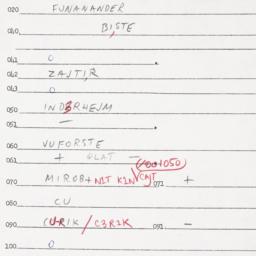 020 FUNANANDER
040 BISTE
041 0
042 ZAJTIR
043 0
050 INDBRHEJM
051 —
060 VUFORSTE
061 + GLAT —
070 MIROB+ NIT KIN CAJT 071 +
080 CU
090 CURIK / C3R1K 091 —
100 0